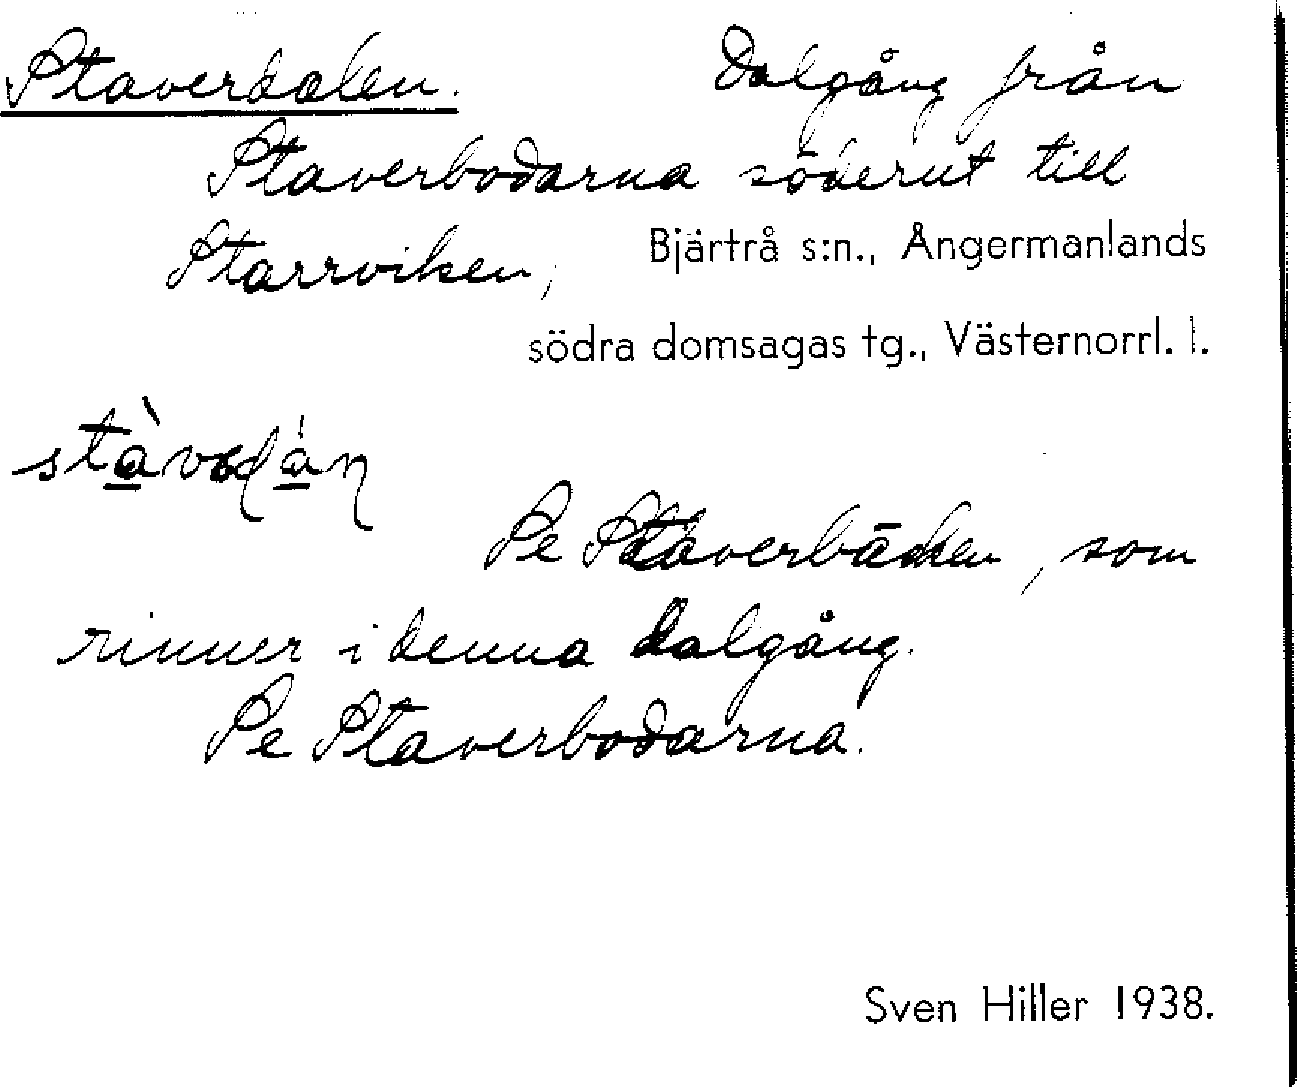 Staverdalen. Dalgång från
Staverbodarna söderut till
Starrviken, Bjärtrå s:n., Ångermanlands
södra domsagas tg., Västernorrl. l.
Se Staverbäcken, som
rinner i denna dalgång.
Se Staverbodarna.
Sven Hiller 1938.